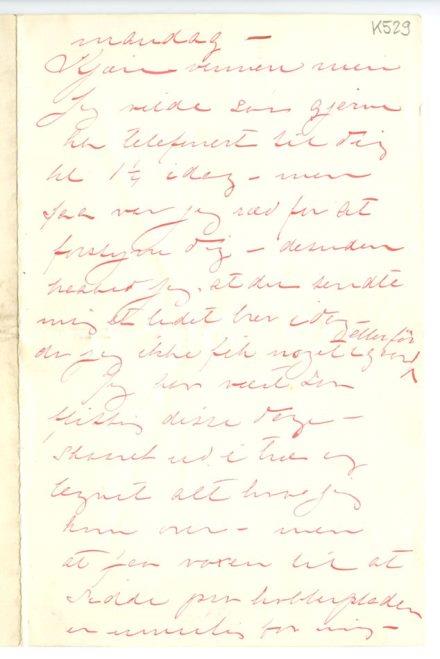 K529
mandag –
Kjære vennen min
Jeg vilde saa gjerne
ha telefonert til dig
kl 1½ idag – men
saa var jeg ræd for at
forstyrre dig – desuden
haabed jeg, at du sendte
mig et lidet brev idag –
da jeg ikke fik noget igaar eller för
Jeg har vært saa
flittig disse dage –
skaaret ud i træ og
tegnet alt hvad jeg
kom over – men
at faa voxen til at
sidde paa kobberpladen
er umulig for mig –